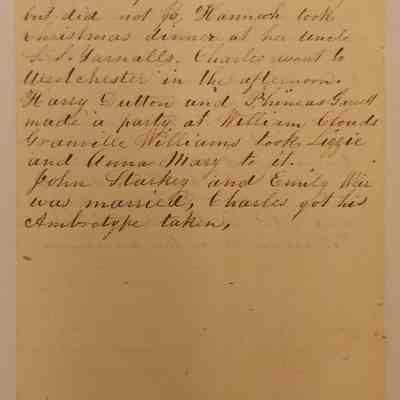 but did not go, Hannah took
Christmas dinner at her uncle
Yarnalls. Charles went to
Westchester in the afternoon.
Harry Dutton and Phineas
made a party at William Clouds
Granville Williams took Lizzie
and Anna Mary to it.
John Starkey and Emily Weir
was married, Charles got his
Ambrotype taken,